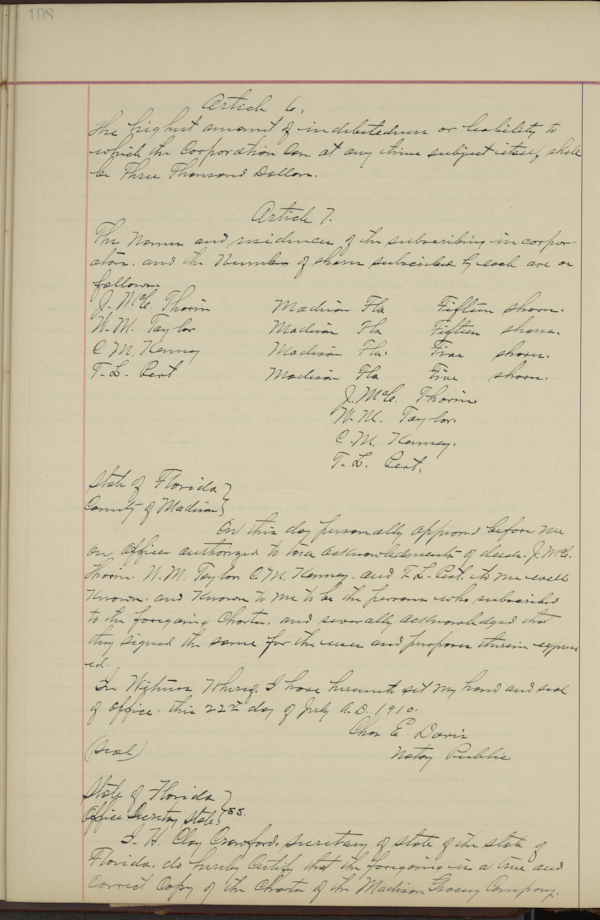 198
Article 6.
The highest amount of indebtedness or liability to
which the Corporation can at any time subject itself shall
be Three Thousand Dollars.
Article 7.
The Names and residences of the subscribing incorpor-
ators. and the Number of shares subscribed by each are as
follows.
J. McC. Thorin Madison Fla Fifteen shares.
W. M. Taylor Madison Fla Fifteen shares.
C. M. Kenney Madison Fla. Five shares.
T. L. Madison Fla Five shares.
J. McC. Thorin
W. M. Taylor.
C. M. Kenney.
T. L.
State of Florida }
County of Madison }
On this day personally appeared before me
an officer authorized to take acknowledgments of deeds. J. McC.
Thorin W. M. Taylor C. M. Kenney. and T. L. to me well
Known. and Known to me to be the persons who subscribed
to the foregoing Charter. and severally acknowledged that
they signed the same for the uses and purposes therein express
ed.
In Witness Whereof, I have hereunto set my hand and seal
of office. this 22nd day of July A.D. 1910.
Chas E Davis
(Seal) Notary Public
State of Florida }
Office Secretary State. } SS.
I. H. Clay Crawford, Secretary of State of the State of
Florida. do hereby Certify that the foregoing is a true and
Correct Copy of the Charter of the Madison Grocery Company.